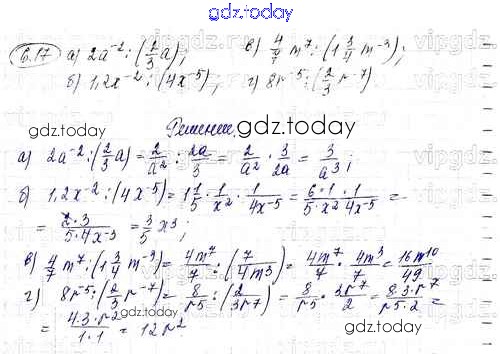 gdz.today
6.17 а) 2a⁻² : (2/3 a); в) 4/7 m⁷ : (1 3/4 m⁻³);
б) 1,2x⁻² : (4x⁻⁵); г) 8r⁻⁵ : (2/3 r⁻⁷)
Решение.
gdz.today
gdz.today
а) 2a⁻² : (2/3 a) = 2/a² : 2a/3 = 2/a² · 3/2a = 3/a³;
б) 1,2x⁻² : (4x⁻⁵) = 1 1/5 · 1/x² · 1/4x⁻⁵ = 6·1·1/5·x²4x⁻⁵ =
= 2·3/5·4x⁻³ = 3/5 x³;
gdz.today
в) 4/7 m⁷ : (1 3/4 m⁻³) = 4m⁷/7 : (7/4m³) = 4m⁷/7 · 4m³/7 = 16m¹⁰/49
г) 8r⁻⁵ : (2/3 r⁻⁷) = 8/r5 : (2/3r7) = 8/r5 · 3r⁷/2 = 8·3·r⁷/r5·2 =
= 4·3·r²/1·1 = 12r²
gdz.today